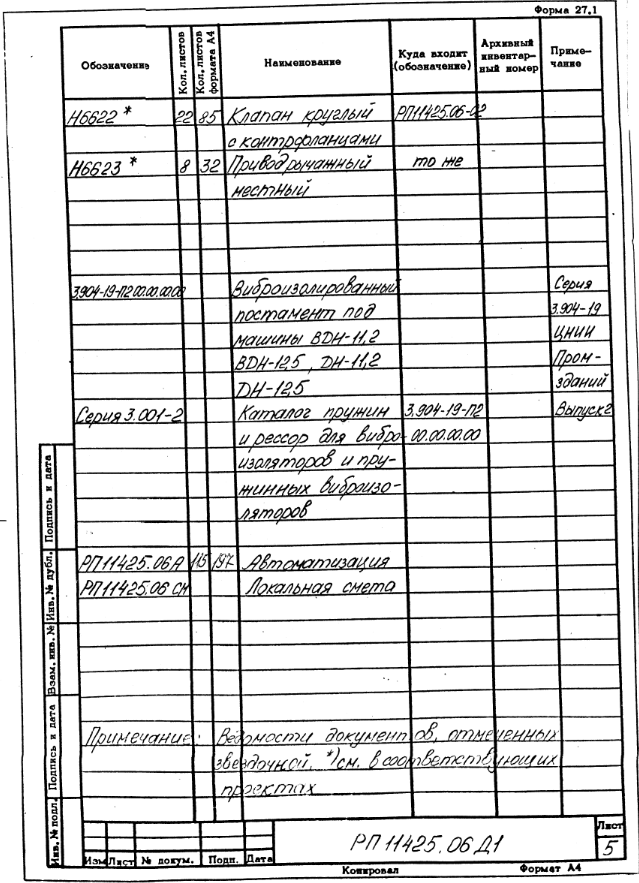 Форма 27.1
Обозначение
Кол. листов
Кол. листов формата А4
Наименование
Куда входит (обозначение)
Архивный инвентар-ный номер
Приме-чание
Н6622 * 22 85 Клапан круглый РП11425.06-02
с контрфланцами
Н6623 * 8 32 Привод рычажный то же
местный
3.904-19-П2.00.00.00.00 Виброизолированный Серия
постамент под 3.904-19
машины ВДН-11,2 ЦНИИ
ВДН-12,5, ДН-11,2 Пром-
ДН-12,5 зданий
Серия 3.001-2 Каталог пружин 3.904-19-П2 Выпуск 2
и рессор для вибро- 00.00.00.00
изоляторов и пру-
жинных виброизо-
ляторов
РП11425.06А 115 197 Автоматизация
РП11425.06 СМ Локальная смета
Примечание: Ведомости документов, отмеченных
звездочкой, *) см. в соответствующих
проектах
Инв. № подл.
Подпись и дата
Взам. инв. №
Инв. № дубл.
Подпись и дата
Изм Лист № докум. Подп. Дата
РП 11425.06 Д1
Лист
5
Копировал
Формат А4